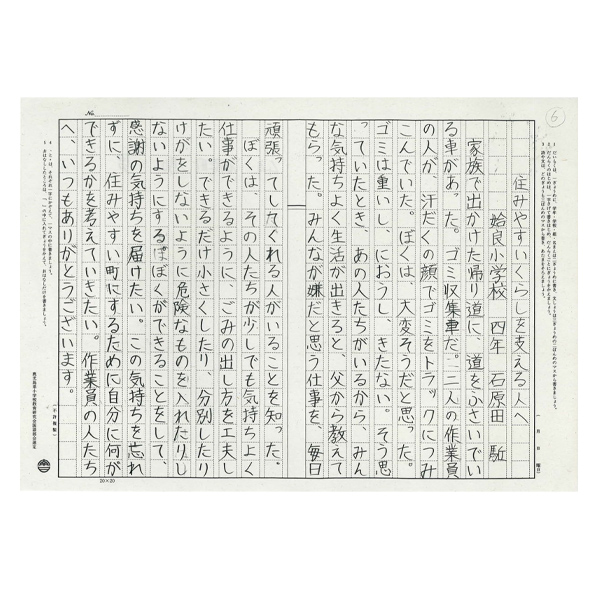 住みやすいくらしを支える人へ
姶良小学校 四年 石原田 駈
家族で出かけた帰り道に、道をふさいでい
る車があった。ゴミ収集車だ。二人の作業員
の人が、汗だくの顔でゴミをトラックにつみ
こんでいた。ぼくは、大変そうだと思った。
ゴミは重いし、におうし、きたない。そう思
っていたとき、あの人たちがいるから、みん
な気持ちよく生活が出きると、父から教えて
もらった。みんなが嫌だと思う仕事を、毎日
頑張ってしてくれる人がいることを知った。
ぼくは、その人たちが少しでも気持ちよく
仕事ができるように、ごみの出し方を工夫し
たい。できるだけ小さくしたり、分別したり
けがをしないように危険なものを入れたりし
ないようにする。ぼくができることをして、
感謝の気持ちを届けたい。この気持ちを忘れ
ずに、住みやすい町にするために自分に何が
できるかを考えていきたい。作業員の人たち
へ、いつもありがとうございます。
No.
20×20
6
月 日 曜日
(不許複製)